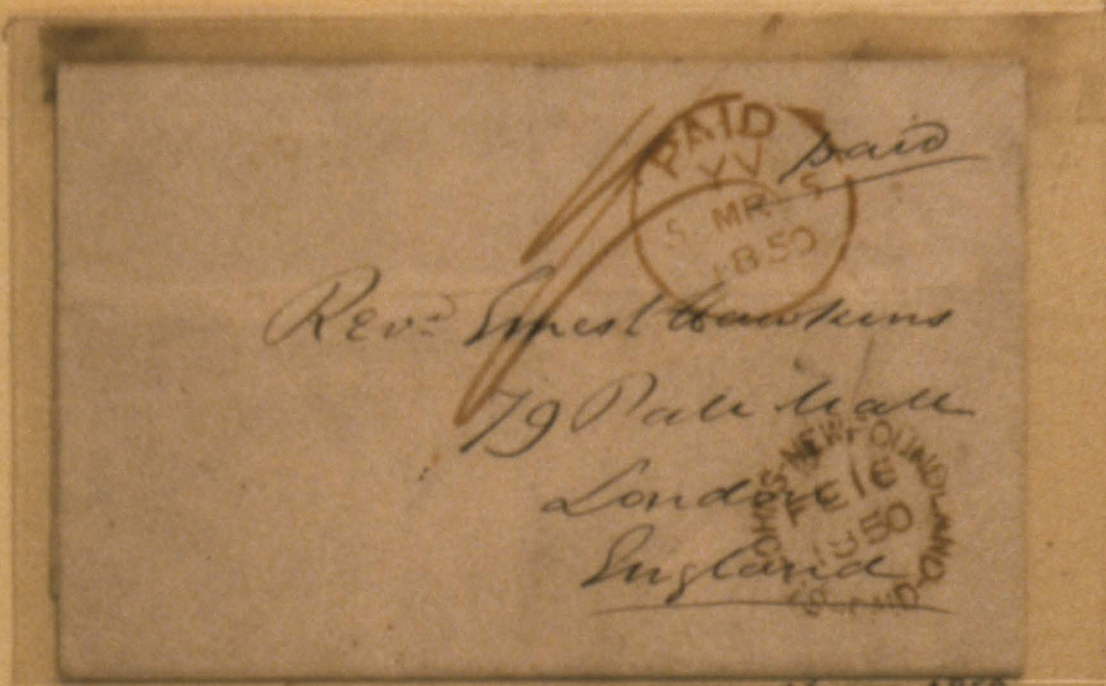 PAID
VV
paid
S MR 5
1850
Revd Ernest Hawkins
79 Pall Mall
London
England
ST JOHNS NEWFOUNDLAND
FE 16
1850
PAID